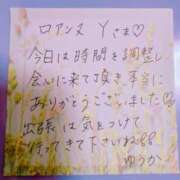 ロアンヌ Yさま♡
今日は時間を調整し
会いに来て頂き本当に
ありがとうございました
出張は気をつけて
行ってきて下さいね
ゆうか